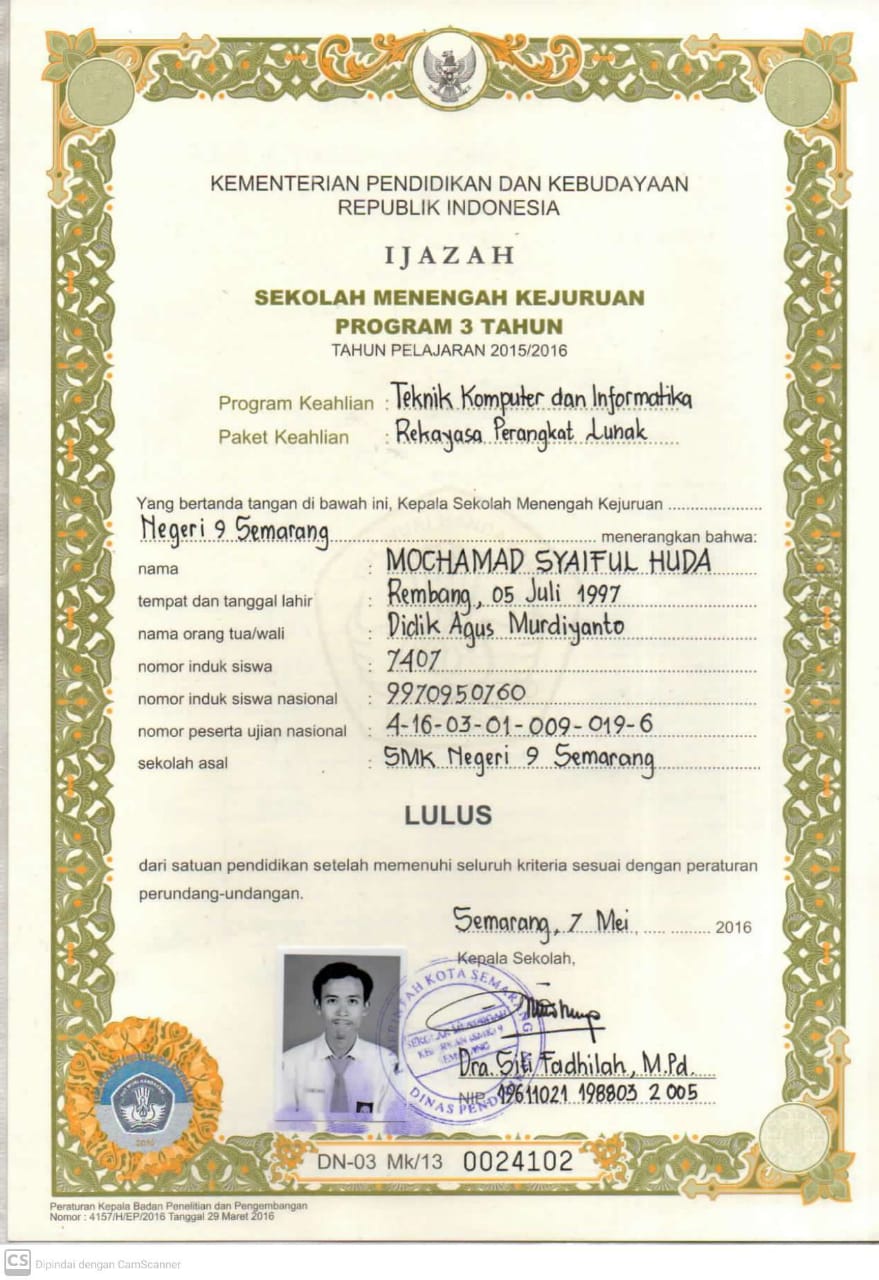 KEMENTERIAN PENDIDIKAN DAN KEBUDAYAAN
REPUBLIK INDONESIA
IJAZAH
SEKOLAH MENENGAH KEJURUAN
PROGRAM 3 TAHUN
TAHUN PELAJARAN 2015/2016
Program Keahlian : Teknik Komputer dan Informatika
Paket Keahlian : Rekayasa Perangkat Lunak
Yang bertanda tangan di bawah ini, Kepala Sekolah Menengah Kejuruan ....................
Negeri 9 Semarang ........................................ menerangkan bahwa:
nama : MOCHAMAD SYAIFUL HUDA
tempat dan tanggal lahir : Rembang, 05 Juli 1997
nama orang tua/wali : Didik Agus Murdiyanto
nomor induk siswa : 7407
nomor induk siswa nasional : 9970950760
nomor peserta ujian nasional : 4-16-03-01-009-019-6
sekolah asal : SMK Negeri 9 Semarang
LULUS
dari satuan pendidikan setelah memenuhi seluruh kriteria sesuai dengan peraturan
perundang-undangan.
Semarang, 7 Mei, .... ......... 2016
Kepala Sekolah,
PEMERINTAH KOTA SEMARANG
SEKOLAH MENENGAH
KEJURUAN NEGERI 9
SEMARANG
DINAS PENDIDIKAN
Dra. Siti Fadhilah, M.Pd.
NIP. 19611021 198803 2 005
TUT WURI HANDAYANI
2016
DN-03 Mk/13 0024102
Peraturan Kepala Badan Penelitian dan Pengembangan
Nomor : 4157/H/EP/2016 Tanggal 29 Maret 2016
CS Dipindai dengan CamScanner